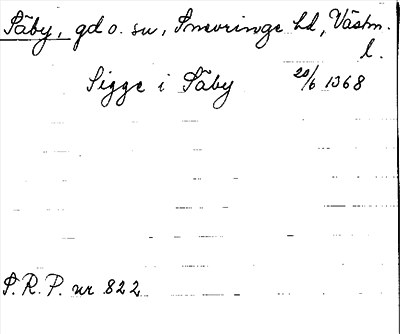 Säby, gd o. su, Snevringe hd, Västm.
l.
Sigge i Säby 20/6 1368
S. R. P. nr 822